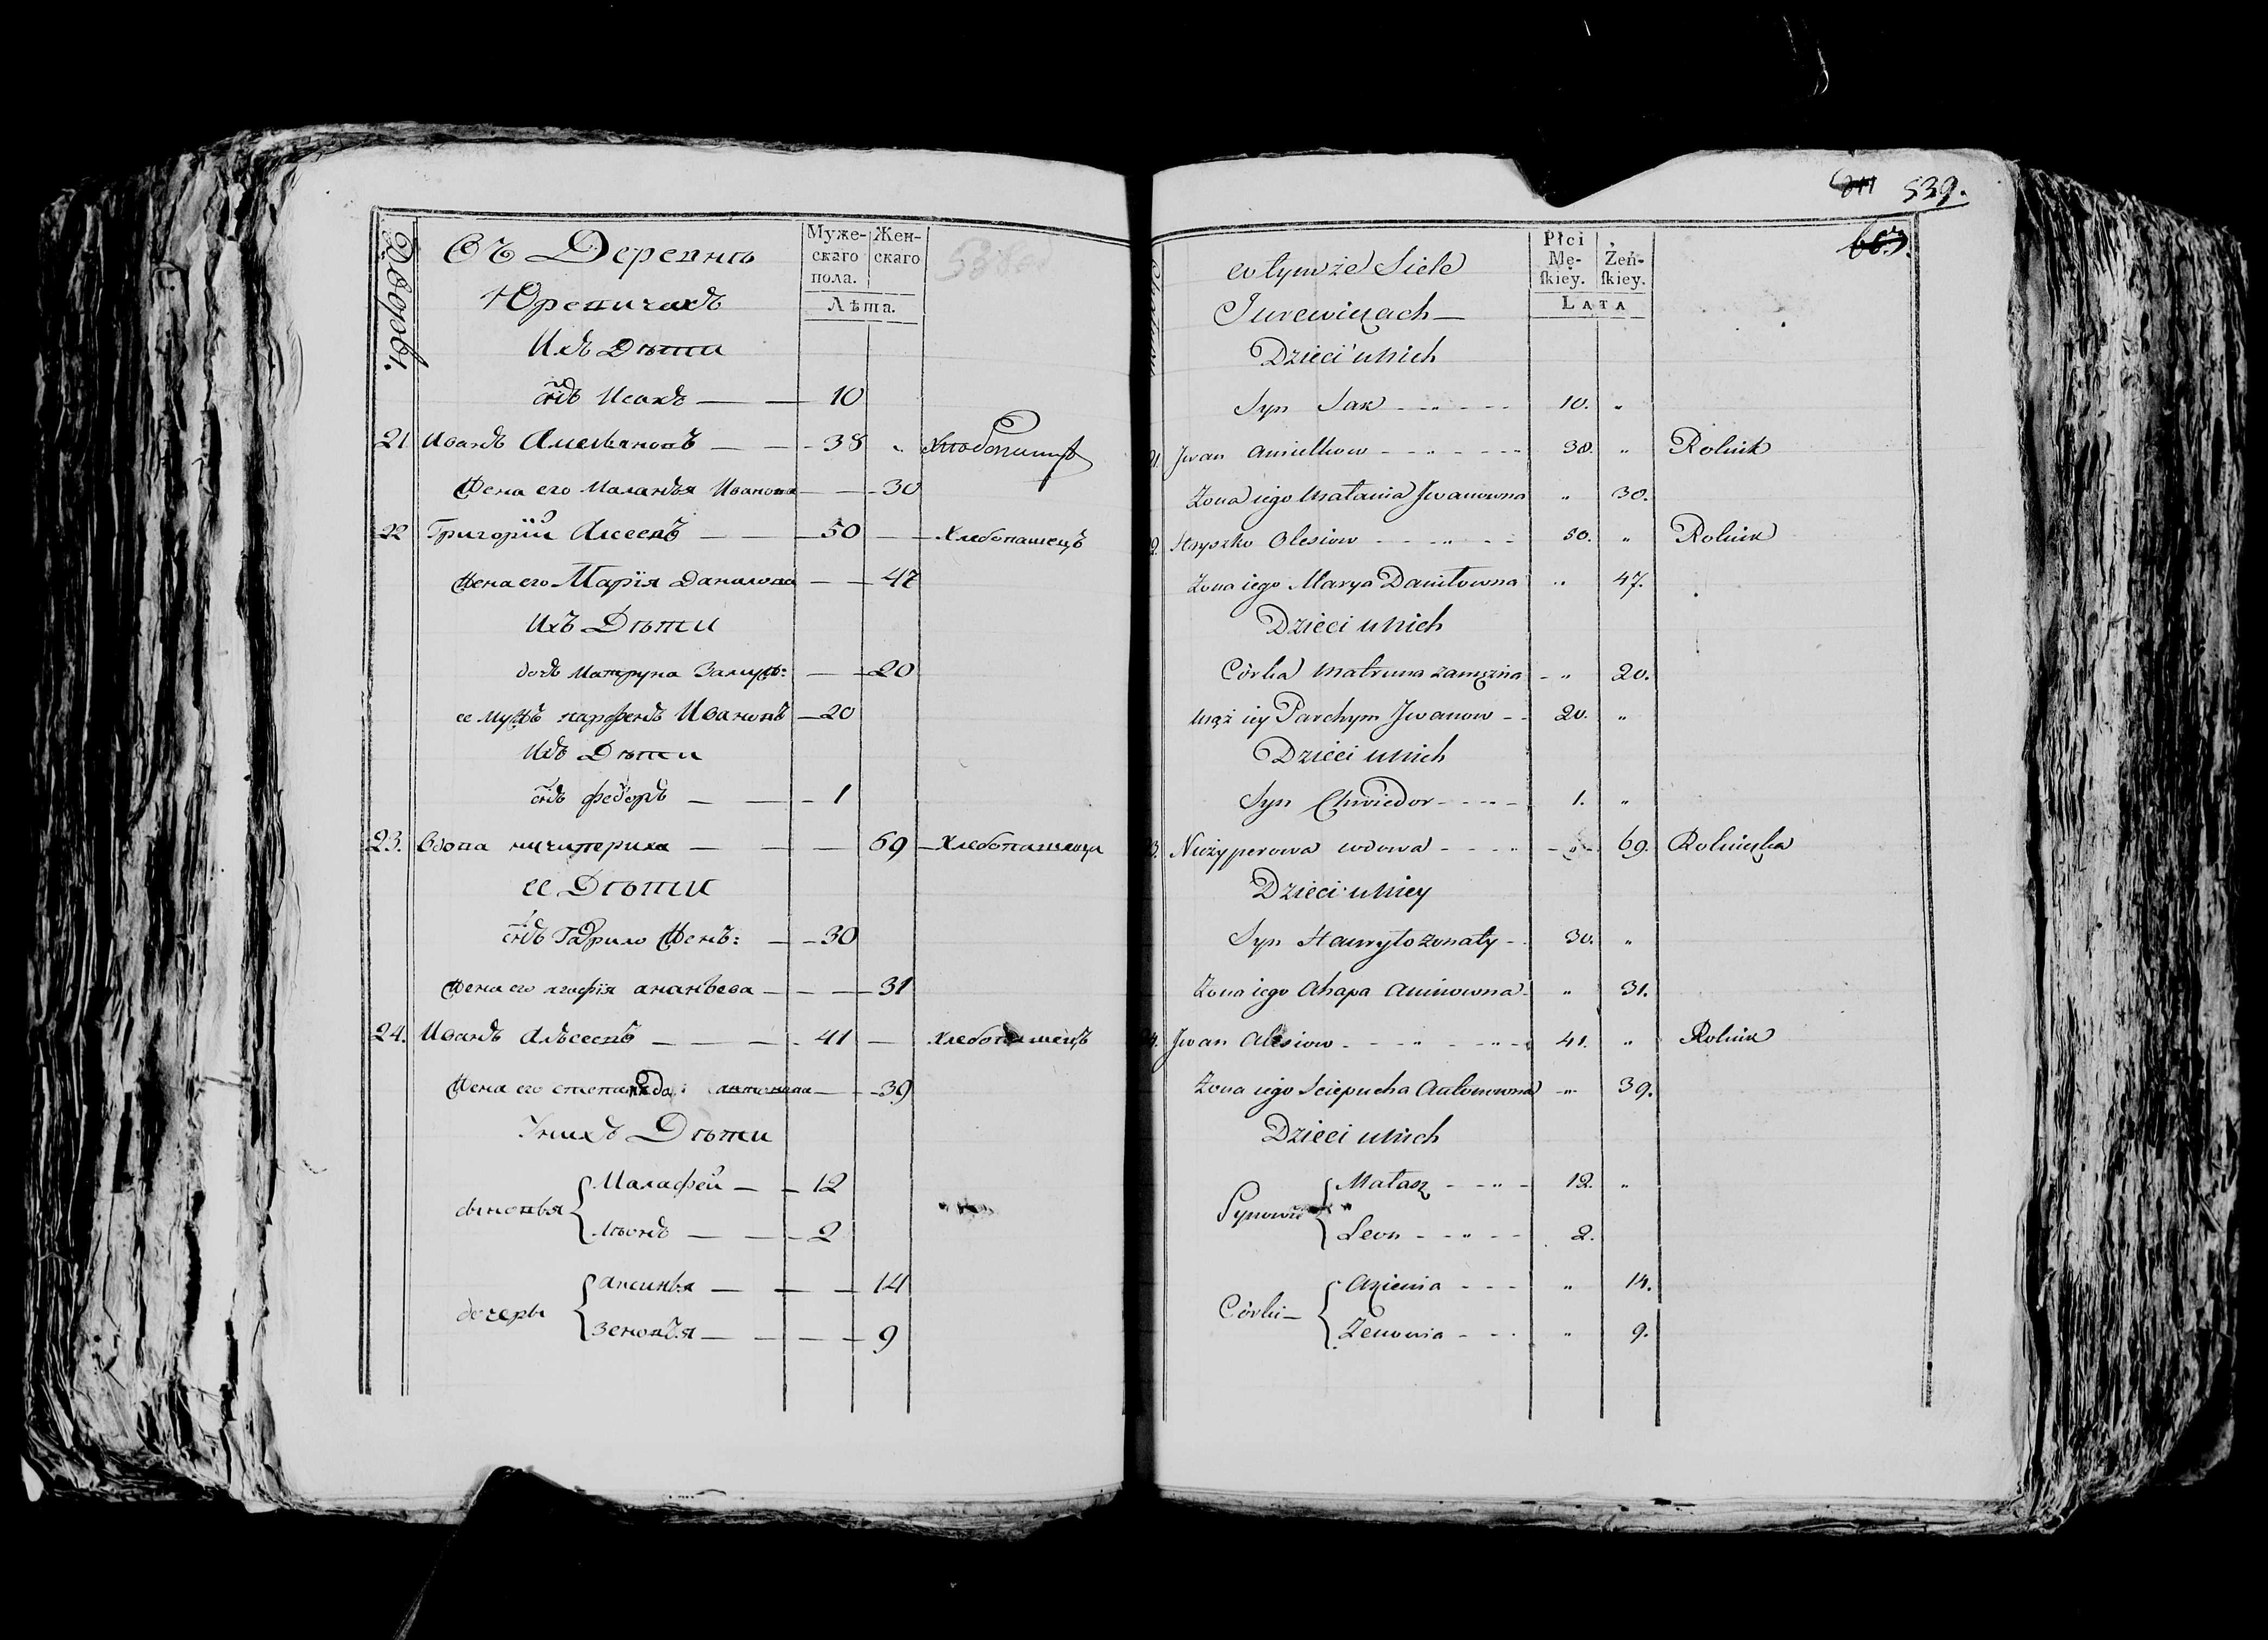 Дворы.
Въ Деревнѣ
Муже-
скаго
пола.
Жен-
скаго
Лѣта.
Юревичахъ
Ихъ Дѣти
сынъ Исакъ — — 10
21 Иванъ Амельяновъ — — 38 " Хлѣбопашецъ
Жена его Маланья Иванова — — 30
22 Григорій Алсеевъ — — 50 — Хлебопашецъ
Жена его Марія Данилова — — 47
Ихъ Дѣти
дочь Матруна Замуж: — — 20
ее Мужъ Парфенъ Ивановъ — 20
Ихъ Дѣти
сынъ Федоръ — — 1
23. Вдова ничиперика — — 69 — Хлебопашица
ее Дѣти
сынъ Гаврило Жен: — 30
Жена его Агафія ананьева — — 31
24. Иванъ Алѣсеевъ — — — 41 — Хлебопашецъ
Жена его степанида антонова — — 39
У нихъ Дѣти
сыновья { Малафей — — 12
Лѣонъ — — 2
дочеры { Аксинья — — — 14
Зеновѣя — — — 9
539.
w tymże Siele
Płci
Mę-
ſkiey.
Żeń-
ſkiey.
LATA
Jurewiczach —
Dzieci u Nich
Syn Sak - - " - - 10. "
21. Jwan Amielkow - - " - - 38. " Rolnik
Żona iego Małania Jwanowna " 30.
22. Hryszko Olesiow - - " - - 50. " Rolnik
Żona iego Marya Daniłowna " 47.
Dzieci u Nich
Córka Matruna zamężna - " 20.
Mąż iey Parchym Jwanow - - 20. "
Dzieci u Nich
Syn Chwiedor - - " - 1. "
23. Niczyperowa wdowa - - " - " - 69. Rolniczka
Dzieci u Niey
Syn Hawryło żonaty - 30. "
Żona iego Ahapa Aninowna - " 31.
24. Jwan Alesiow - - " - " - 41. " Rolnik
Żona iego Sciepucha Antonowna - " 39.
Dzieci u Nich
Synowie { Małasz - - " - 12. "
Leon - - " - - 2.
Córki — { Axienia - - - " 14.
Zenowia - - - " 9.